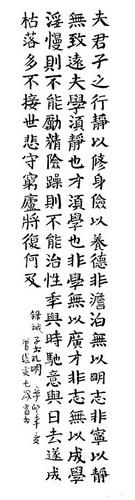 夫君子之行靜以修身儉以養德非澹泊無以明志非寧靜
無致遠夫學須靜也才須學也非學無以廣才非志無以成學
淫慢則不能勵精險躁則不能治性年與時馳意與日去遂成
枯落多不接世悲守窮廬將復何及
錄誡子書孔明 辛卯年